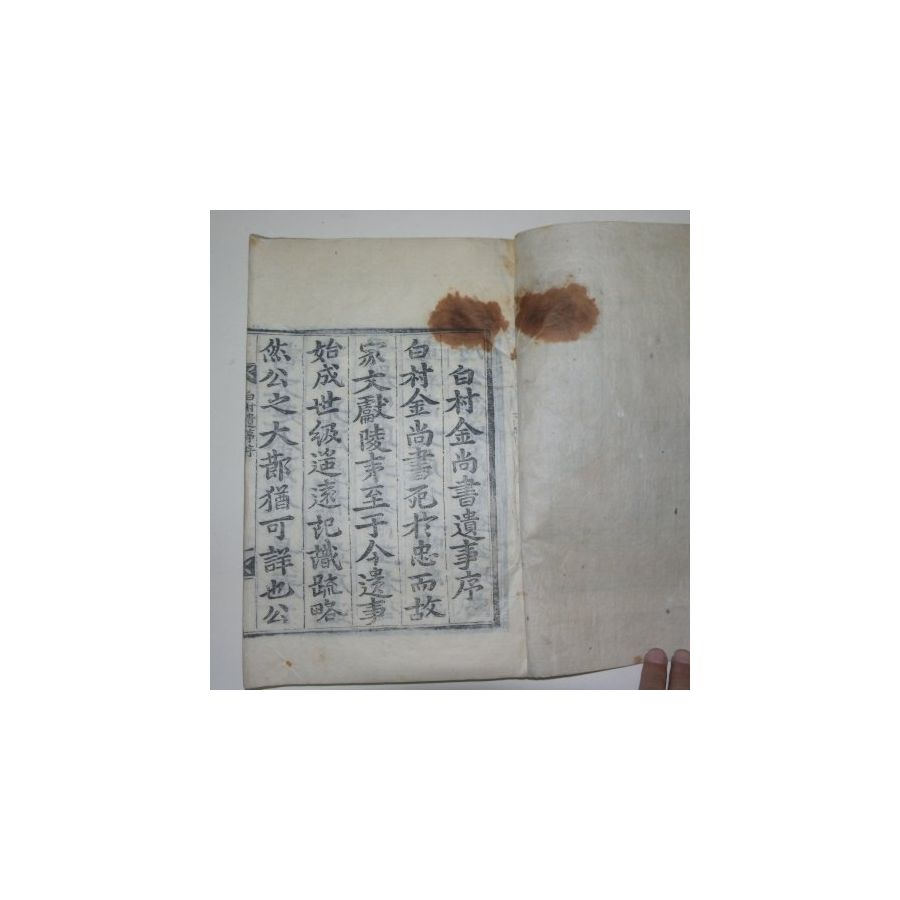 白村金尚書遺事序
白村金尚書死於忠而故
家文獻陵夷至于今遺事
始成世級遥遠記識疏略
然公之大節猶可詳也公
白村遺事序